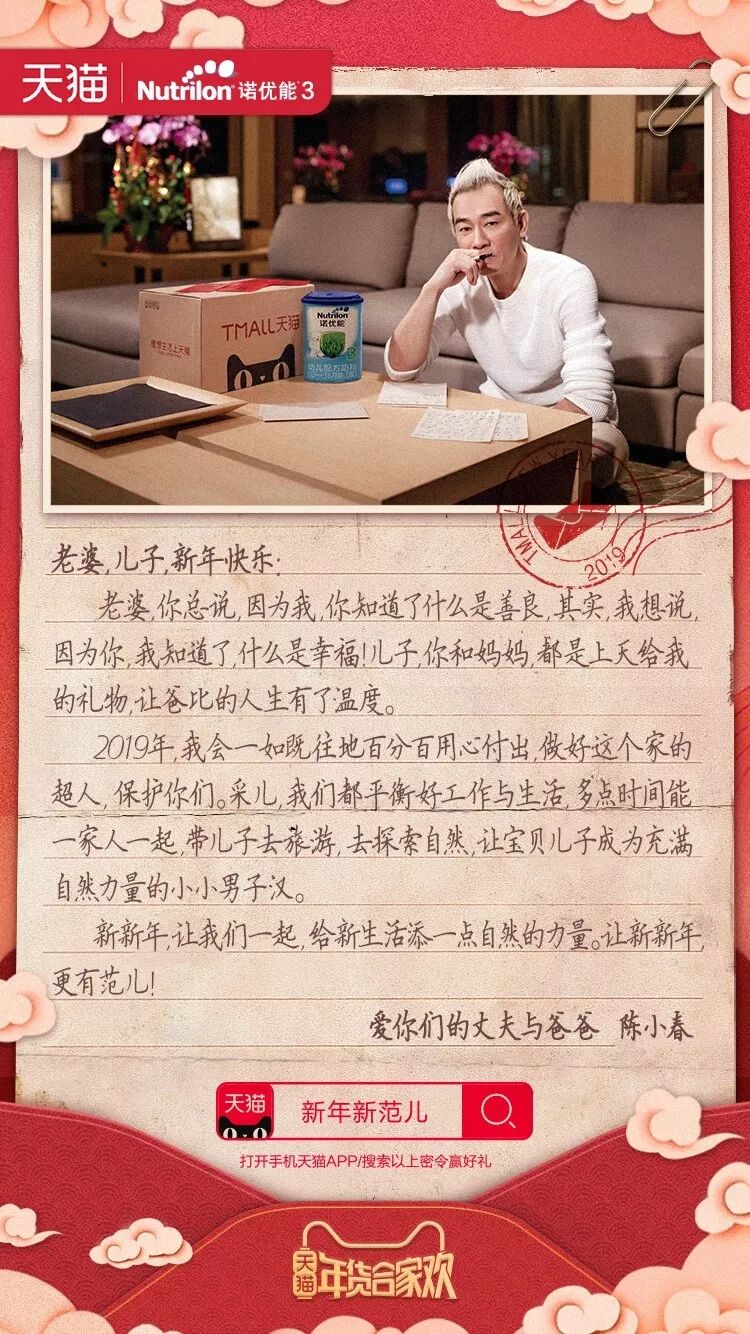 天猫 Nutrilon 诺优能3
TMALL天猫
理想生活上天猫
Nutrilon
诺优能
3
幼儿配方奶粉
老婆,儿子,新年快乐:
老婆,你总说,因为我,你知道了什么是善良,其实,我想说,
因为你,我知道了,什么是幸福!儿子,你和妈妈,都是上天给我
的礼物,让爸比的人生有了温度。
2019年,我会一如既往地百分百用心付出,做好这个家的
超人,保护你们。采儿,我们都平衡好工作与生活,多点时间能
一家人一起,带儿子去旅游,去探索自然,让宝贝儿子成为充满
自然力量的小小男子汉。
新新年,让我们一起,给新生活添一点自然的力量。让新新年,
更有范儿!
爱你们的丈夫与爸爸 陈小春
2019
天猫 新年新范儿
打开手机天猫APP/搜索以上密令赢好礼
天猫 年货合家欢